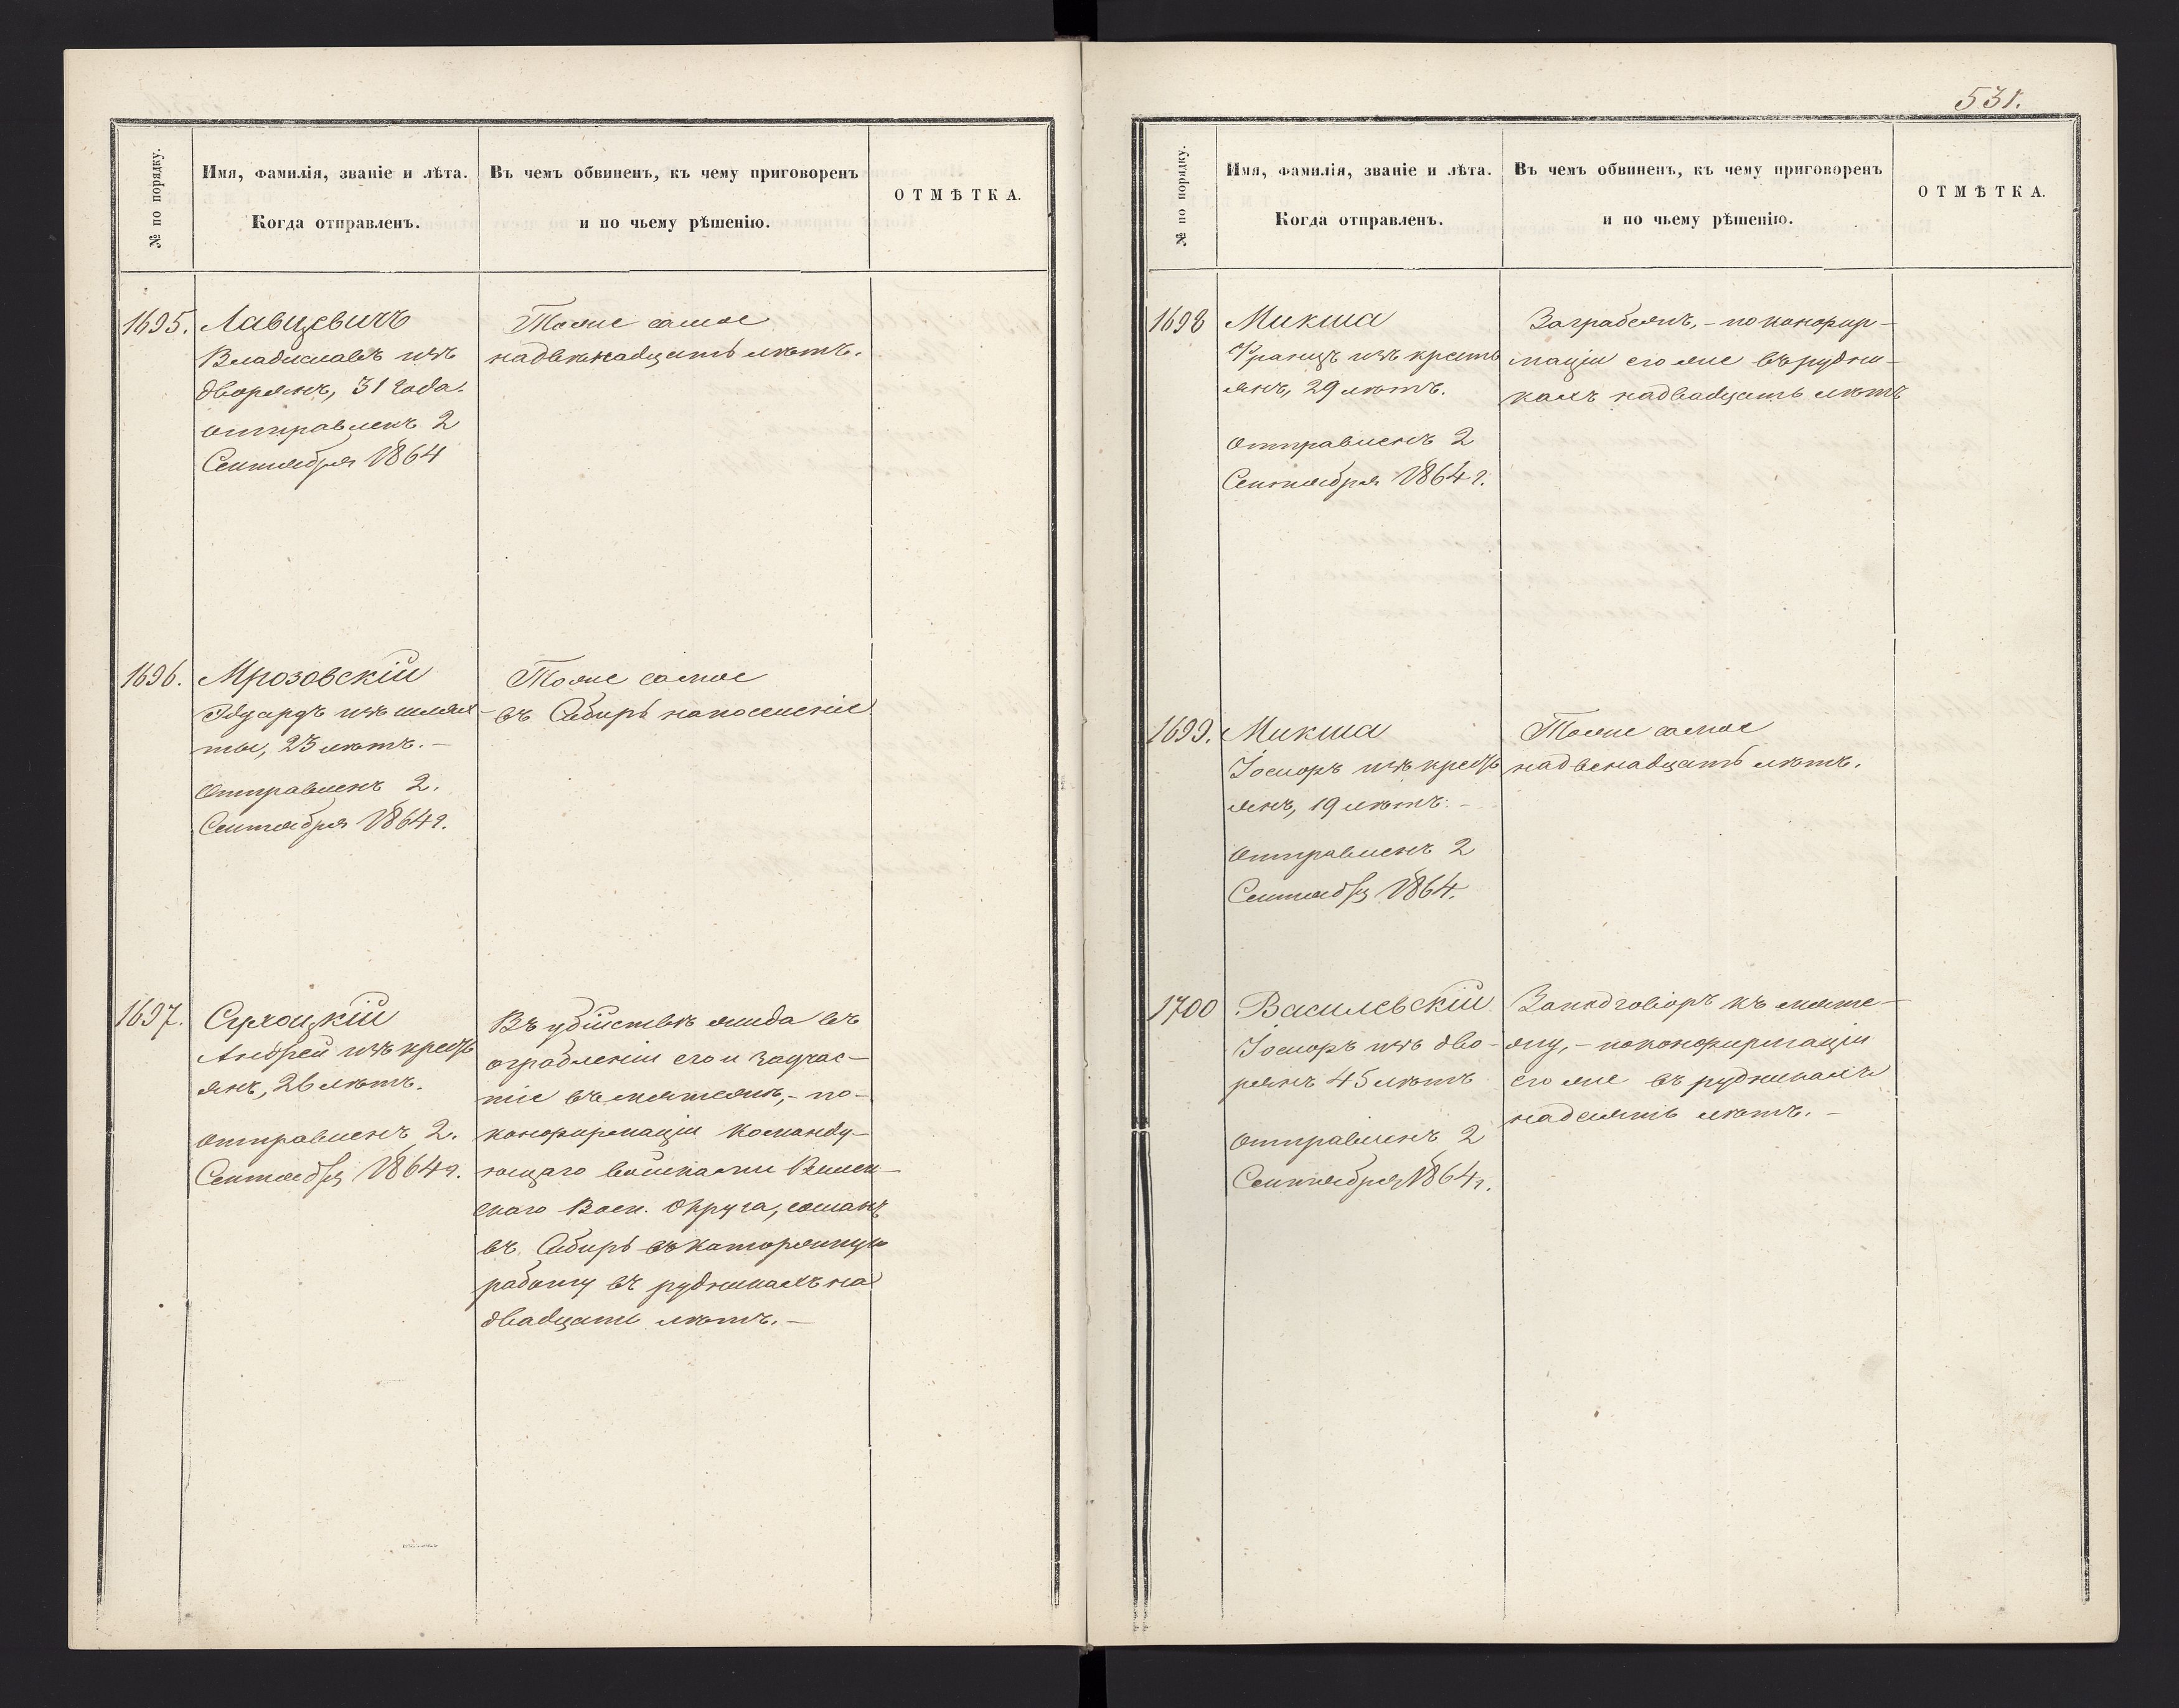 № по порядку.
Имя, фамилія, званіе и лѣта.
Когда отправленъ.
Въ чемъ обвиненъ, къ чему приговоренъ
и по чьему рѣшенію.
ОТМѢТКА.
1695.
Лавцевичъ
Владиславъ изъ
дворянъ, 31 года.
отправленъ 2
Сентября 1864
Тоже самое
на двѣнадцать лѣтъ.
1696.
Мрозовскій
Эдуардъ изъ шлях-
ты, 23 лѣтъ. —
Отправленъ 2.
Сентября 1864 г.
Тоже самое
въ Сибирь на поселеніе
1697.
Андрей изъ кресть
янъ, 26 лѣтъ.
отправленъ 2.
Сентября 1864 г.
Въ убійствѣ жида въ
ограбленіи его и за учас-
тіе въ мятежѣ, - по-
конфирмаціи Команду-
ющаго войсками Вилен-
скаго Воен. Округа, сосланъ
въ Сибирь въ каторжную
работу въ рудникахъ на
двадцать лѣтъ. —
531.
№ по порядку.
Имя, фамилія, званіе и лѣта.
Когда отправленъ.
Въ чемъ обвиненъ, къ чему приговоренъ
и по чьему рѣшенію.
ОТМѢТКА.
1698
Микша
Францъ изъ кресть
янъ, 29 лѣтъ.
Отправленъ 2
Сентября 1864 г.
За грабежъ, - по конфир-
маціи его же въ рудни-
кахъ на двадцать лѣтъ
1699.
Микша
Іосифъ изъ кресть
янъ, 19 лѣтъ. -
Отправленъ 2
Сентября 1864.
Тоже самое
на двенадцать лѣтъ.
1700
Василевскій
Іосифъ изъ дво-
рянъ 45 лѣтъ
Отправленъ 2
Сентября 1864 г.
За подговоръ къ мяте-
жу, - по конфирмаціи
его же въ рудникахъ
на десять лѣтъ. —